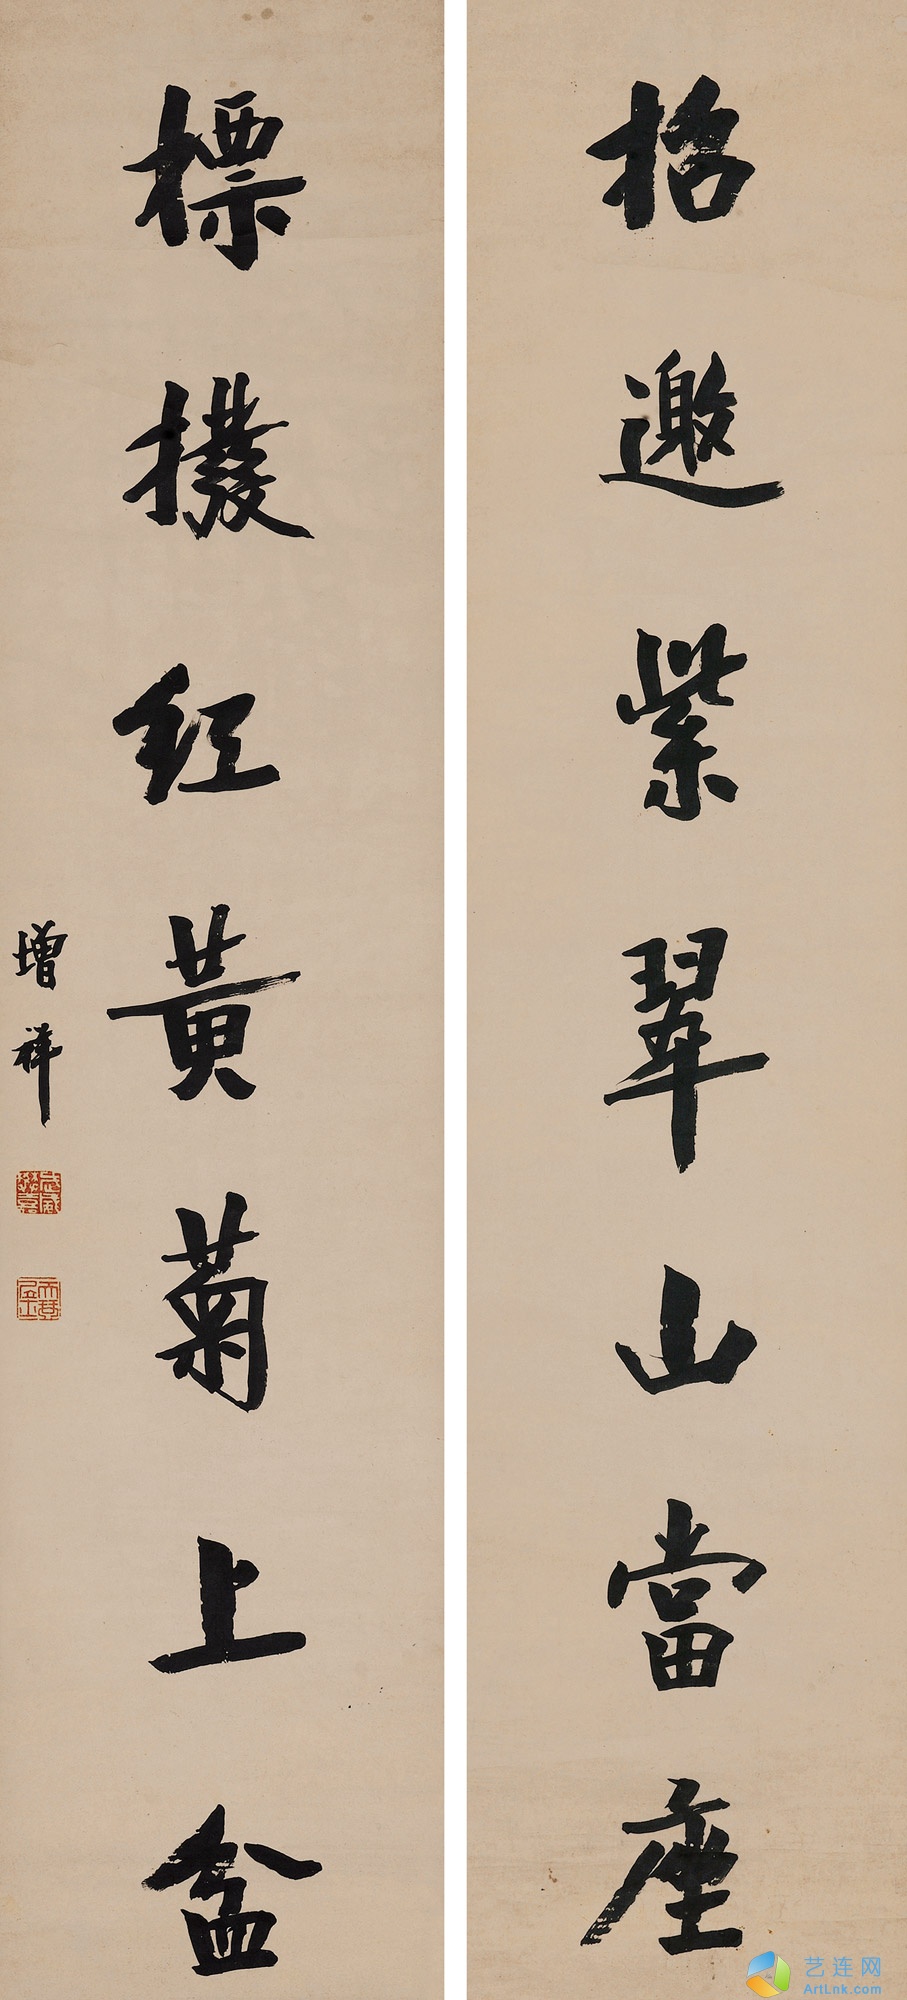 招邀紫翠山當座
標撥紅黃菊上盆
增祥
艺连网
ArtLnk.com